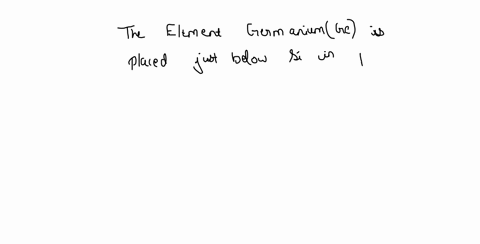 The Element Germanium(Ge) is
placed just below Si in